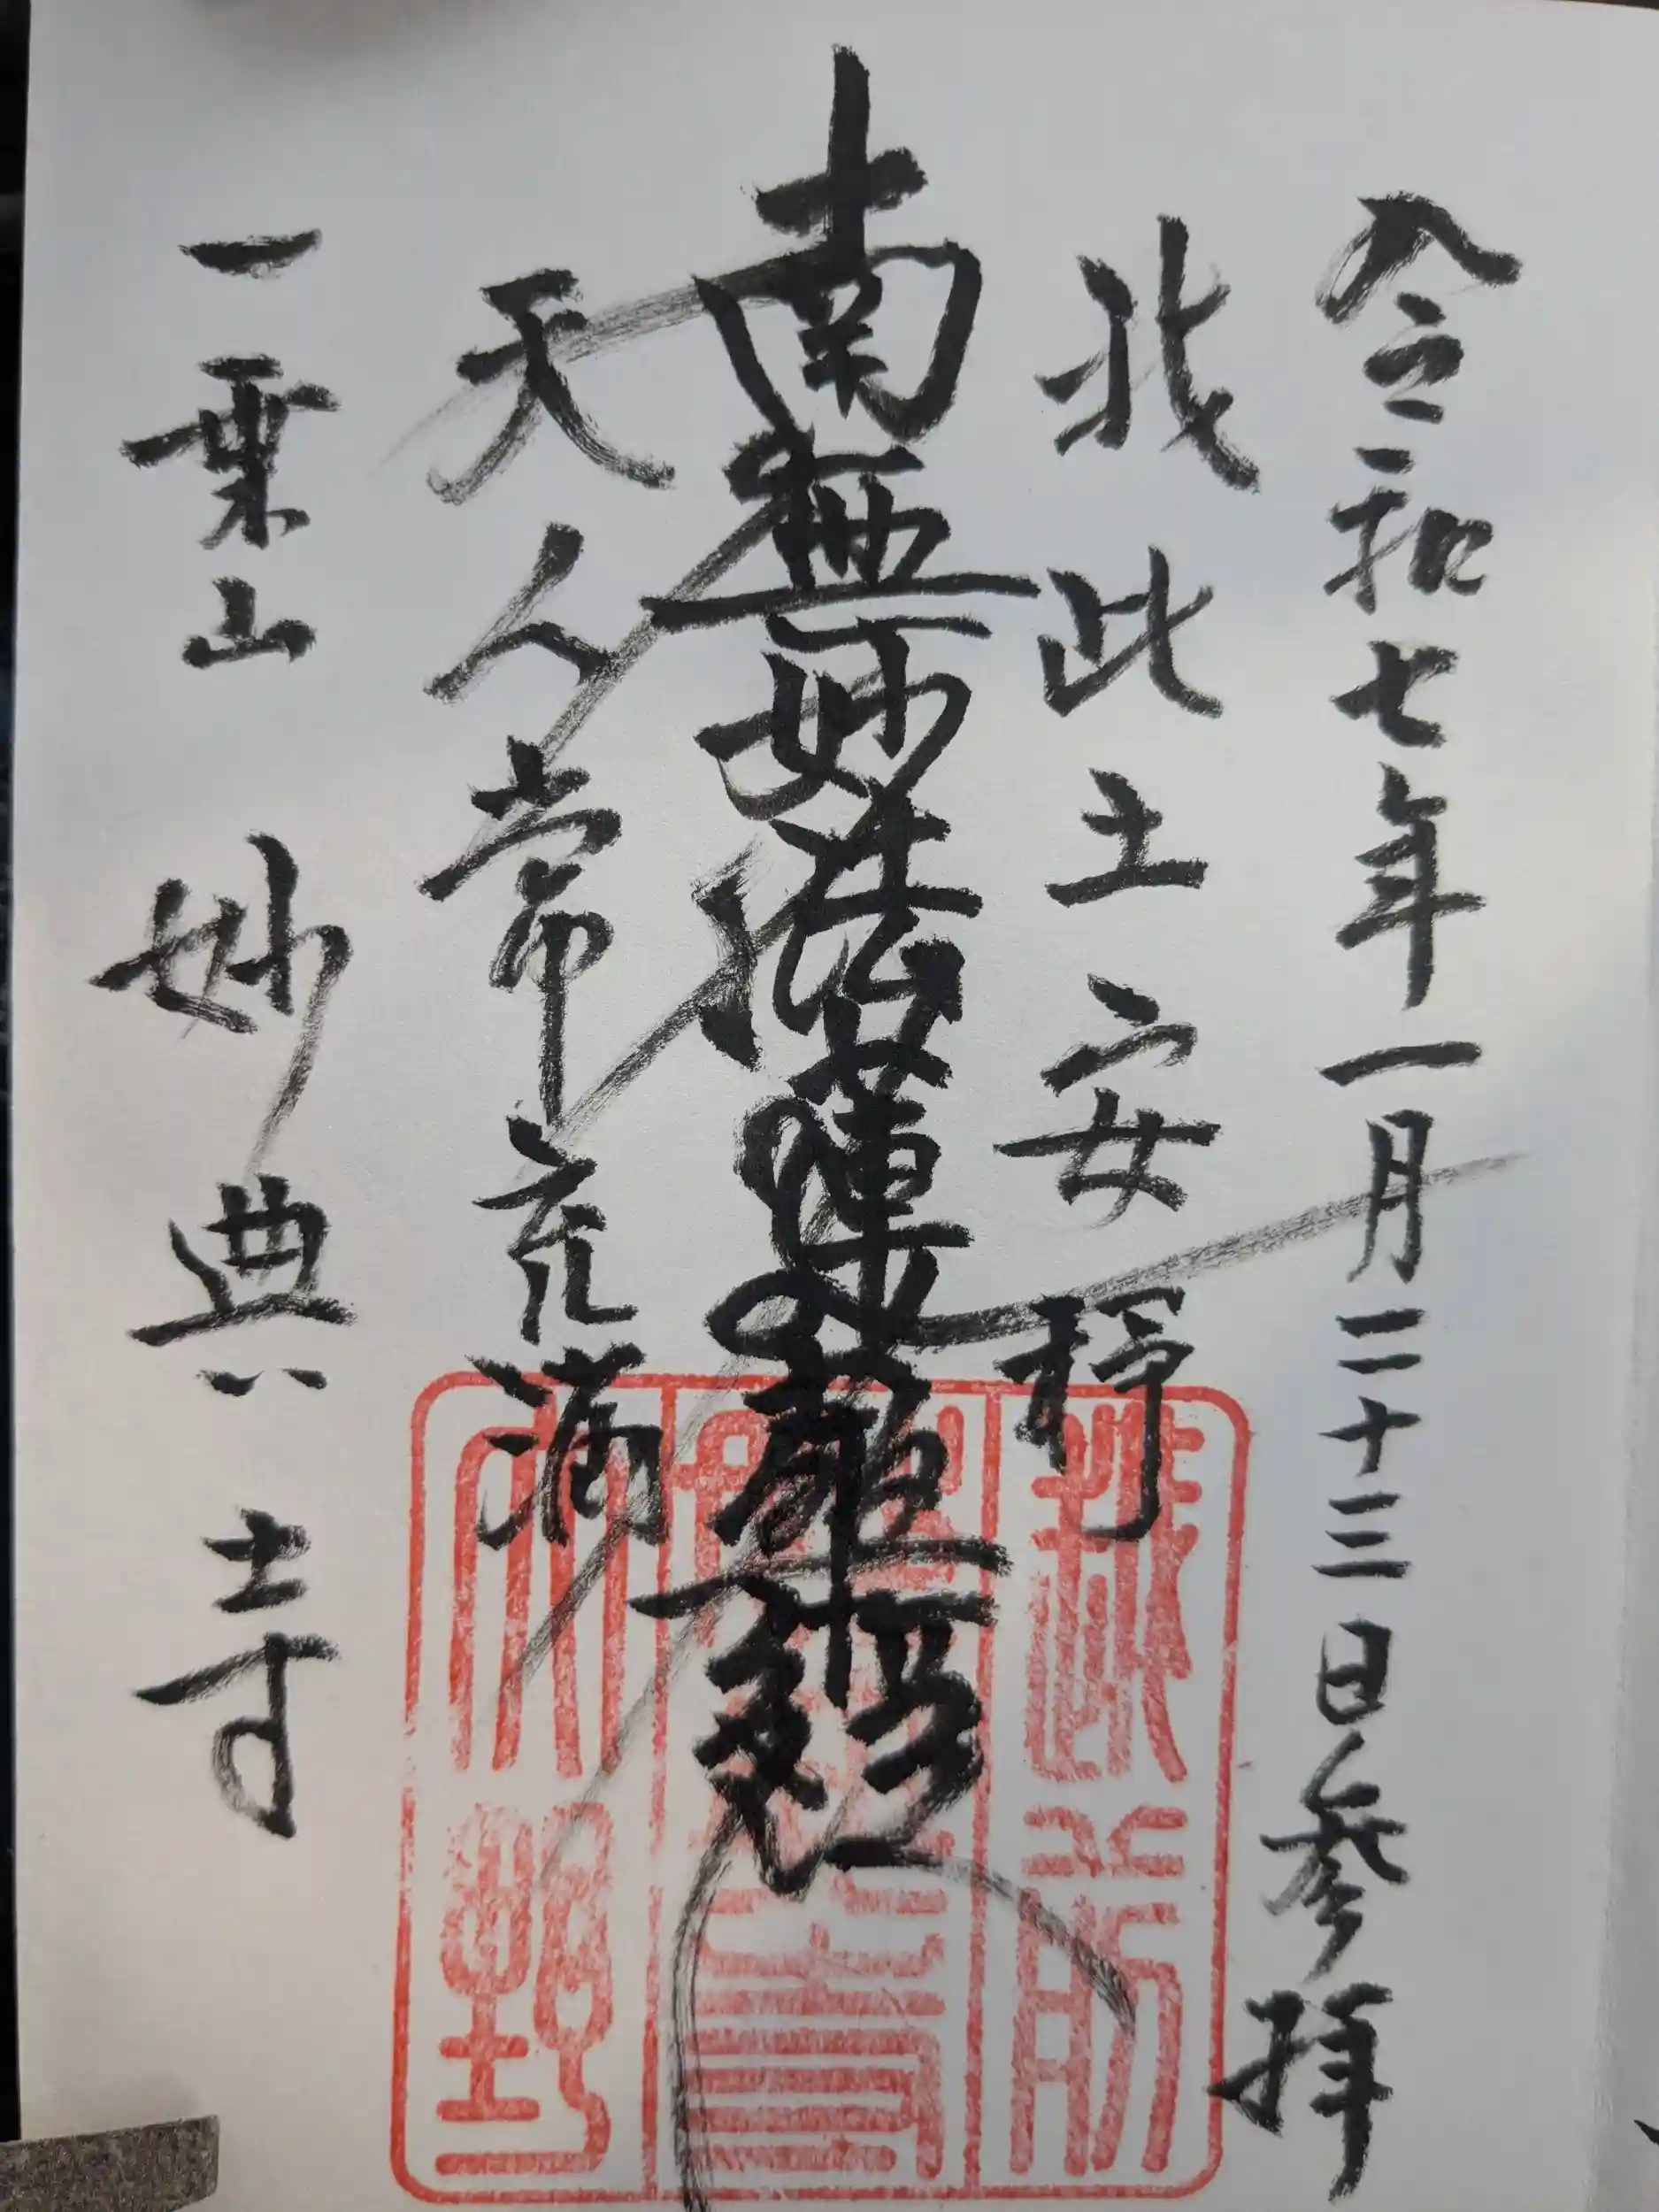 令和七年一月二十三日参拝
我此土安穏
南無妙法蓮華経
天人常充満
一乗山 妙典寺
越前
大野